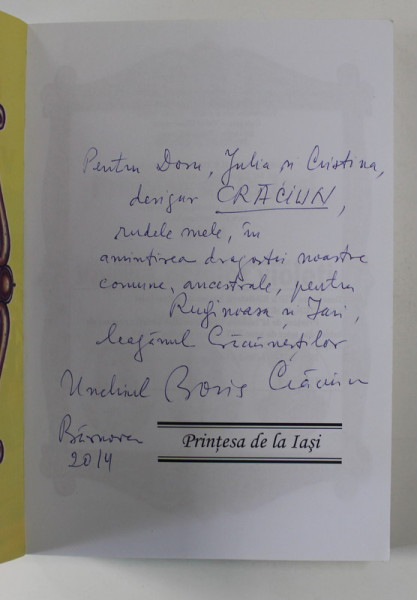 Pentru Doru, Julia și Cristina,
desigur CRĂCIUN,
rudele mele, în
amintirea dragostei noastre
comune, ancestrale, pentru
Ruginoasa și Iași,
leagănul Crăciuneștilor
Unchiul Boris Crăciun
Bârnova
2014
Prințesa de la Iași